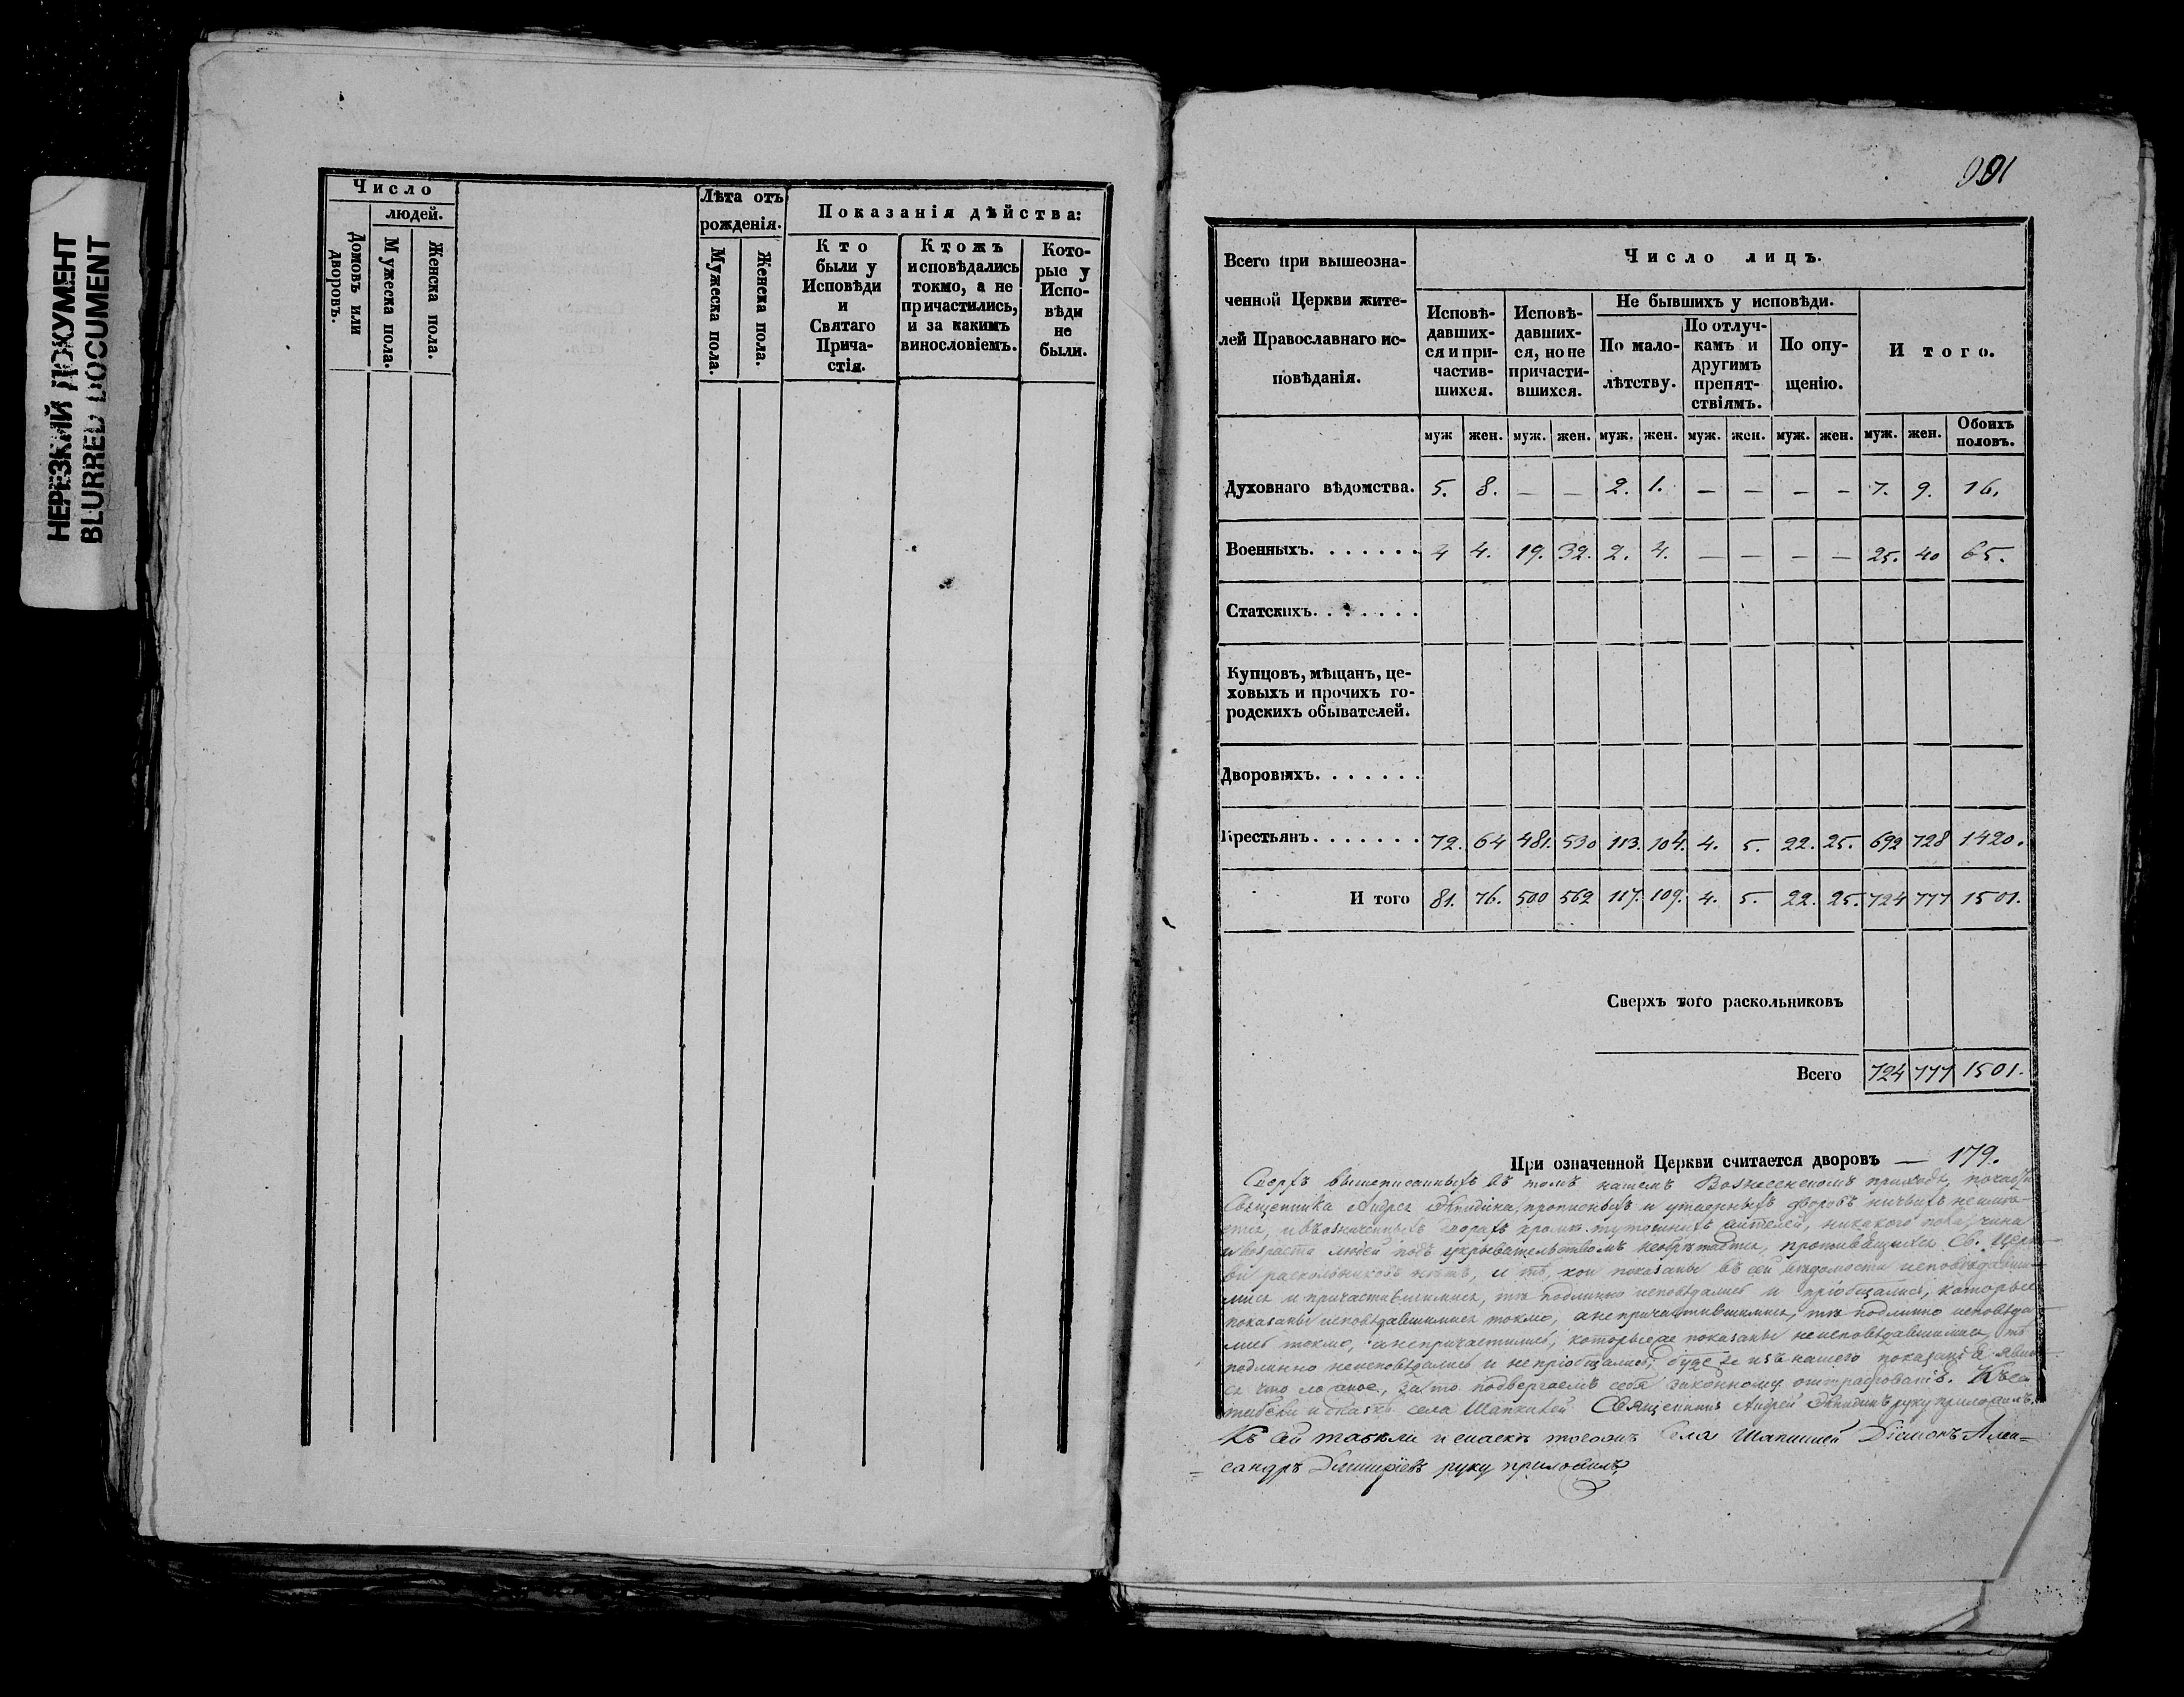 НЕРЕЗКИЙ ДОКУМЕНТ
BLURRED DOCUMENT
Число
людей.
Домовъ или дворовъ.
Мужеска пола.
Женска пола.
Лѣта отъ
рожденія.
Мужеска пола.
Женска пола.
Показанія дѣйства:
Кто
были у
Исповѣди
и
Святаго
Прича-
стія.
Ктожъ
исповѣдались
токмо, а не
причастились,
и за какимъ
винословіемъ.
Кото-
рые у
Испо-
вѣди
не
были.
991
Всего при вышеозна-
ченной Церкви жите-
лей Православнаго ис-
повѣданія.
Число лицъ.
Исповѣ-
давших-
ся и при-
частив-
шихся.
Исповѣ-
давших-
ся, но не
причасти-
вшихся.
Не бывшихъ у исповѣди.
По мало-
лѣтству.
По отлуч-
камъ и
другимъ
препят-
ствіямъ.
По опу-
щенію.
И того.
муж жен. муж. жен. муж. жен. муж. жен. муж. жен. муж. жен. Обоихъ половъ.
Духовнаго вѣдомства. 5. 8. — — 2. 1. — — — — 7. 9. 16.
Военныхъ. . . . . . . 4 4. 19. 32. 2. 4. — — — — 25. 40 65.
Статскихъ. . . . . . .
Купцовъ, мѣщанъ, це-
ховыхъ и прочихъ го-
родскихъ обывателей.
Дворовыхъ. . . . . . .
Крестьянъ. . . . . . . 72. 64 481. 530 113. 104. 4. 5. 22. 25. 692 728 1420.
И того 81. 76. 500 562 117. 109. 4. 5. 22. 25. 724 777 1501.
Сверхъ того раскольниковъ
Всего 724 777 1501.
При означенной Церкви считается дворовъ — 179.
Сверхъ вышеписанныхъ въ томъ нашемъ Вознесенскомъ приходѣ,
Священника Андрея прописныхъ и утаенныхъ дворовъ ничьихъ неимѣ-
ется, и въ означенныхъ дворахъ кромѣ тутошнихъ жителей, никакого пола, чина
и возраста людей подъ укрывательствомъ необрѣтается, противящихся Св. Церк-
ви раскольниковъ нѣтъ, и тѣ, кои показаны въ сей вѣдомости исповѣдавши-
мися и причастившимися, тѣ подлинно исповѣдались и пріобщались, которые
показаны исповѣдавшимися токмо, а непричастившимися, тѣ подлинно исповѣда-
лись токмо, а непричастились, которые же показаны неисповѣдавшимися, тѣ
подлинно неисповѣдались и непріобщались; буде же изъ нашего показанія явит-
ся что ложное, за то подвергаемъ себя законному оштрафованію. Къ сей
табели и сказкѣ села Шапкиней Священникъ Андрей руку приложилъ.
Къ сей табели и сказкѣ тогожъ села Шапкиней Діаконъ Алек=
=сандръ Димитріевъ руку приложилъ